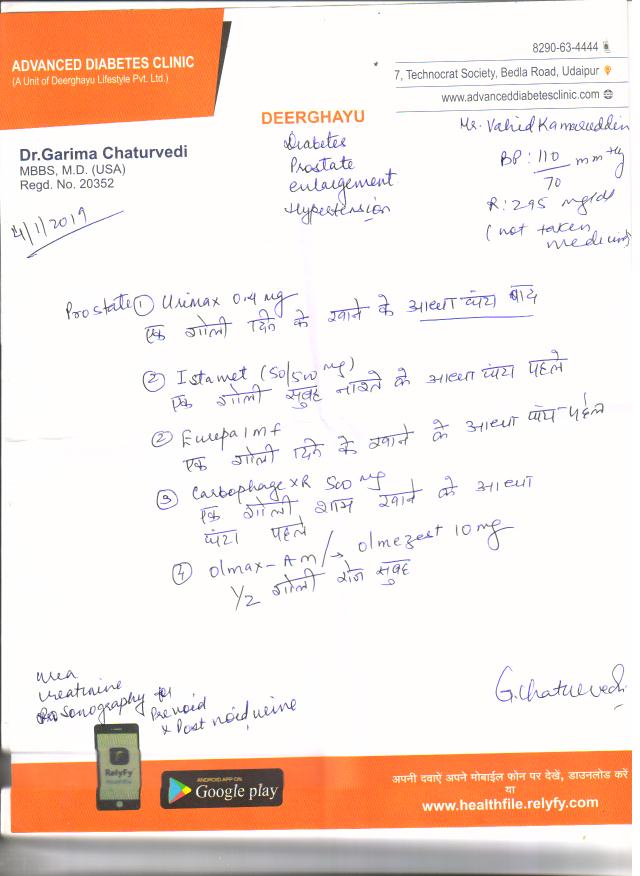 ADVANCED DIABETES CLINIC
(A Unit of Deerghayu Lifestyle Pvt. Ltd.)
8290-63-4444
7, Technocrat Society, Bedla Road, Udaipur
www.advanceddiabetesclinic.com
DEERGHAYU
Dr.Garima Chaturvedi
MBBS, M.D. (USA)
Regd. No. 20352
4/1/2019
Diabetes
Prostate
enlargement
Hypertension
Mr. Vahid Kamaruddin
BP: 110/70 mmHg
R: 295 mg/dl
(not taken
medicine)
Prostate ① Urimax 0.4 mg
एक गोली दिन के खाने के आधा घंटा बाद
② Istamet (50/500 mg)
एक गोली सुबह नाश्ते के आधा घंटा पहले
② Eurepa 1 mf
एक गोली दिन के खाने के आधा घंटा पहले
③ Carbophage XR 500 mg
एक गोली शाम खाने के आधा
घंटा पहले
④ Olmax-AM/→ Olmezest 10 mg
1/2 गोली रोज सुबह
urea
creatinine
Sonography for
Prevoid
& Post void urine
G.Chaturvedi
RelyFy
ANDROID APP ON
Google play
अपनी दवाऐं अपने मोबाईल फोन पर देखें, डाउनलोड करें
या
www.healthfile.relyfy.com